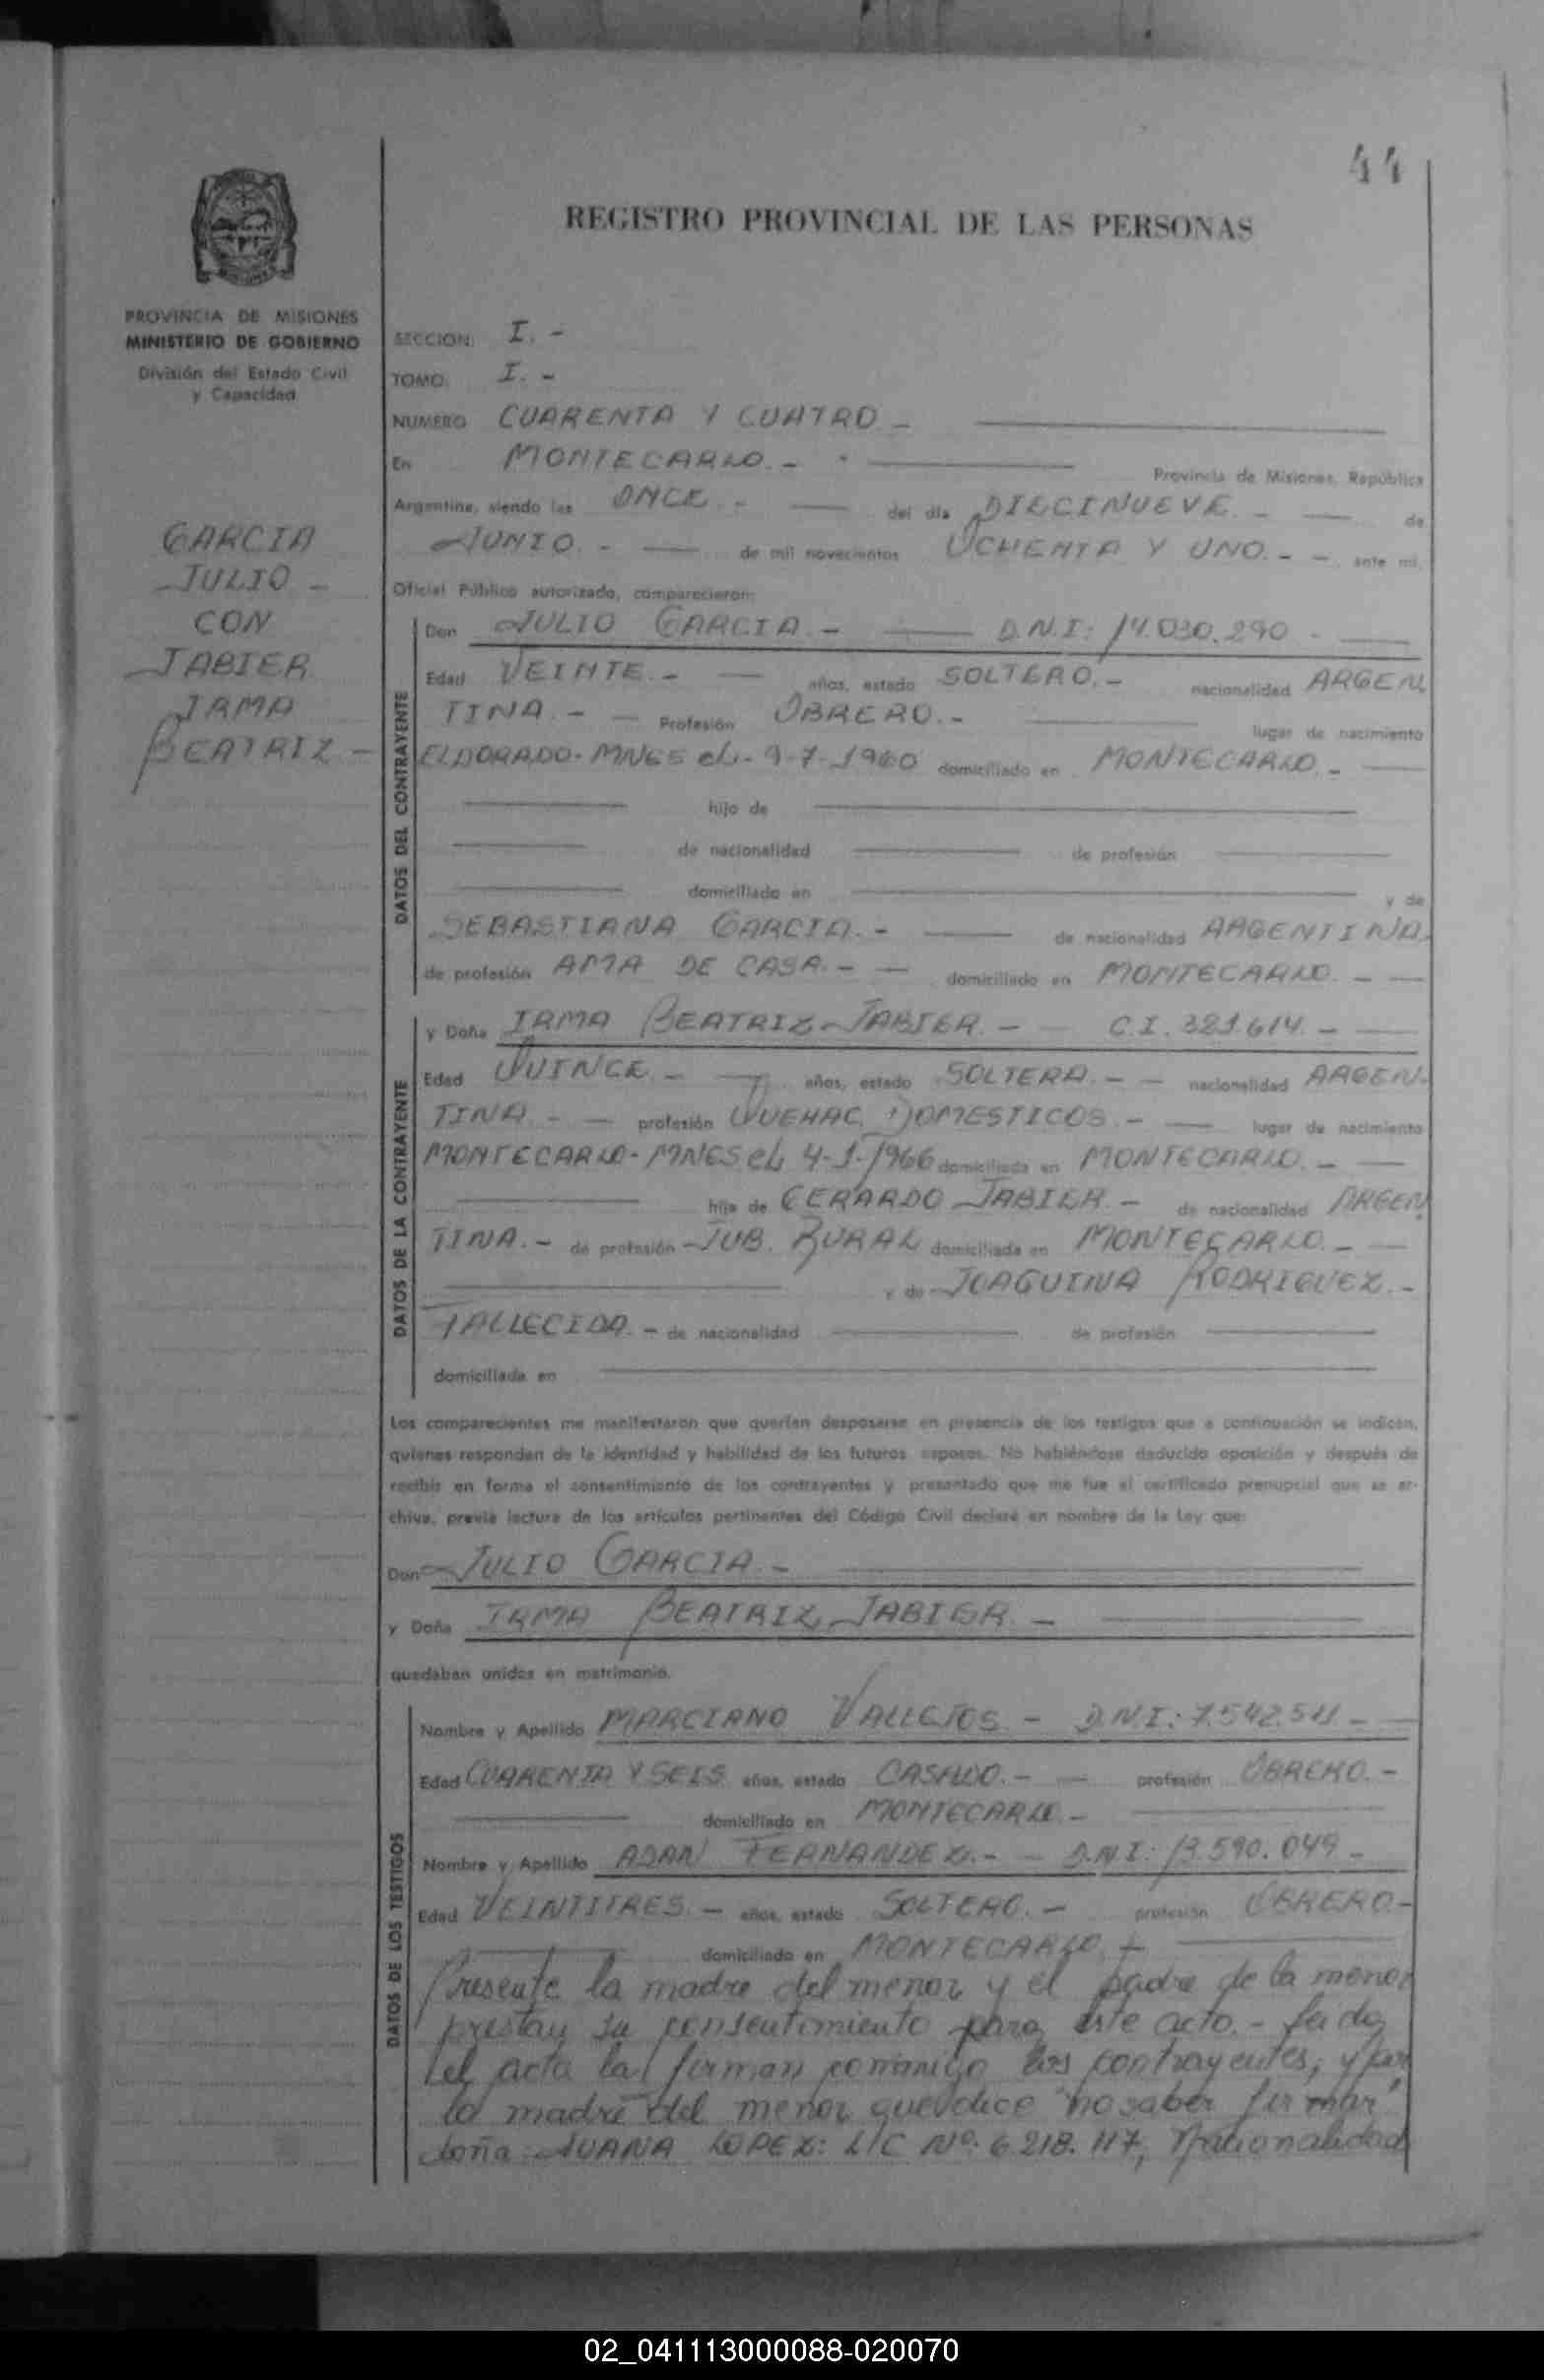 44
REGISTRO PROVINCIAL DE LAS PERSONAS
PROVINCIA DE MISIONES
MINISTERIO DE GOBIERNO
División del Estado Civil
y Capacidad
GARCIA
JULIO -
CON
JABIER
IRMA
BEATRIZ -
SECCION: I. -
TOMO: I. -
NUMERO CUARENTA Y CUATRO -
En MONTECARLO. - Provincia de Misiones, República
Argentina, siendo las ONCE. - del día DIECINUEVE. - de
JUNIO. - de mil novecientos OCHENTA Y UNO. - - ante mí,
Oficial Público autorizado, comparecieron:
DATOS DEL CONTRAYENTE
Don JULIO GARCIA. - D.N.I: 14.030.290 -
Edad VEINTE. - años, estado SOLTERO. - nacionalidad ARGEN
TINA. - - Profesión OBRERO. - lugar de nacimiento
ELDORADO - MNES el - 9-7-1960 domiciliado en MONTECARLO. -
hijo de
de nacionalidad de profesión
domiciliado en y de
SEBASTIANA GARCIA. - de nacionalidad ARGENTINA.
de profesión AMA DE CASA. - - domiciliado en MONTECARLO. - -
DATOS DE LA CONTRAYENTE
y Doña IRMA BEATRIZ JABIER. - C.I. 321.614. -
Edad QUINCE. - años, estado SOLTERA. - - nacionalidad ARGEN-
TINA. - - profesión QUEHAC. DOMESTICOS. - lugar de nacimiento
MONTECARLO - MNES el 4-1-1966 domiciliada en MONTECARLO. -
hija de GERARDO JABIER. - de nacionalidad ARGEN
TINA. - de profesión JUB. RURAL domiciliada en MONTECARLO. -
y de JOAQUINA RODRIGUEZ. -
FALLECIDA. - de nacionalidad de profesión
domiciliada en
Los comparecientes me manifestaron que querían desposarse en presencia de los testigos que a continuación se indican,
quienes responden de la identidad y habilidad de los futuros esposos. No habiéndose deducido oposición y después de
recibir en forma el consentimiento de los contrayentes y presentado que me fue el certificado prenupcial que se ar-
chiva, previa lectura de los artículos pertinentes del Código Civil declaré en nombre de la Ley que:
Don JULIO GARCIA. -
y Doña IRMA BEATRIZ JABIER. -
quedaban unidos en matrimonio.
DATOS DE LOS TESTIGOS
Nombre y Apellido MARCIANO VALLEJOS. - D.N.I: 7.542.511 -
Edad CUARENTA Y SEIS años, estado CASADO. - profesión OBRERO. -
domiciliado en MONTECARLO. -
Nombre y Apellido ADAN FERNANDEZ. - - D.N.I: 13.590.049 -
Edad VEINTITRES. - años, estado SOLTERO. - profesión OBRERO -
domiciliado en MONTECARLO. -
Presente la madre del menor y el padre de la menor
prestan su consentimiento para este acto. - Leida
el acta la firman conmigo los contrayentes, y por
la madre del menor que dice "no saber firmar"
doña JUANA LOPEZ: L/C Nº: 6.218.117, Nacionalidad
02_041113000088-020070